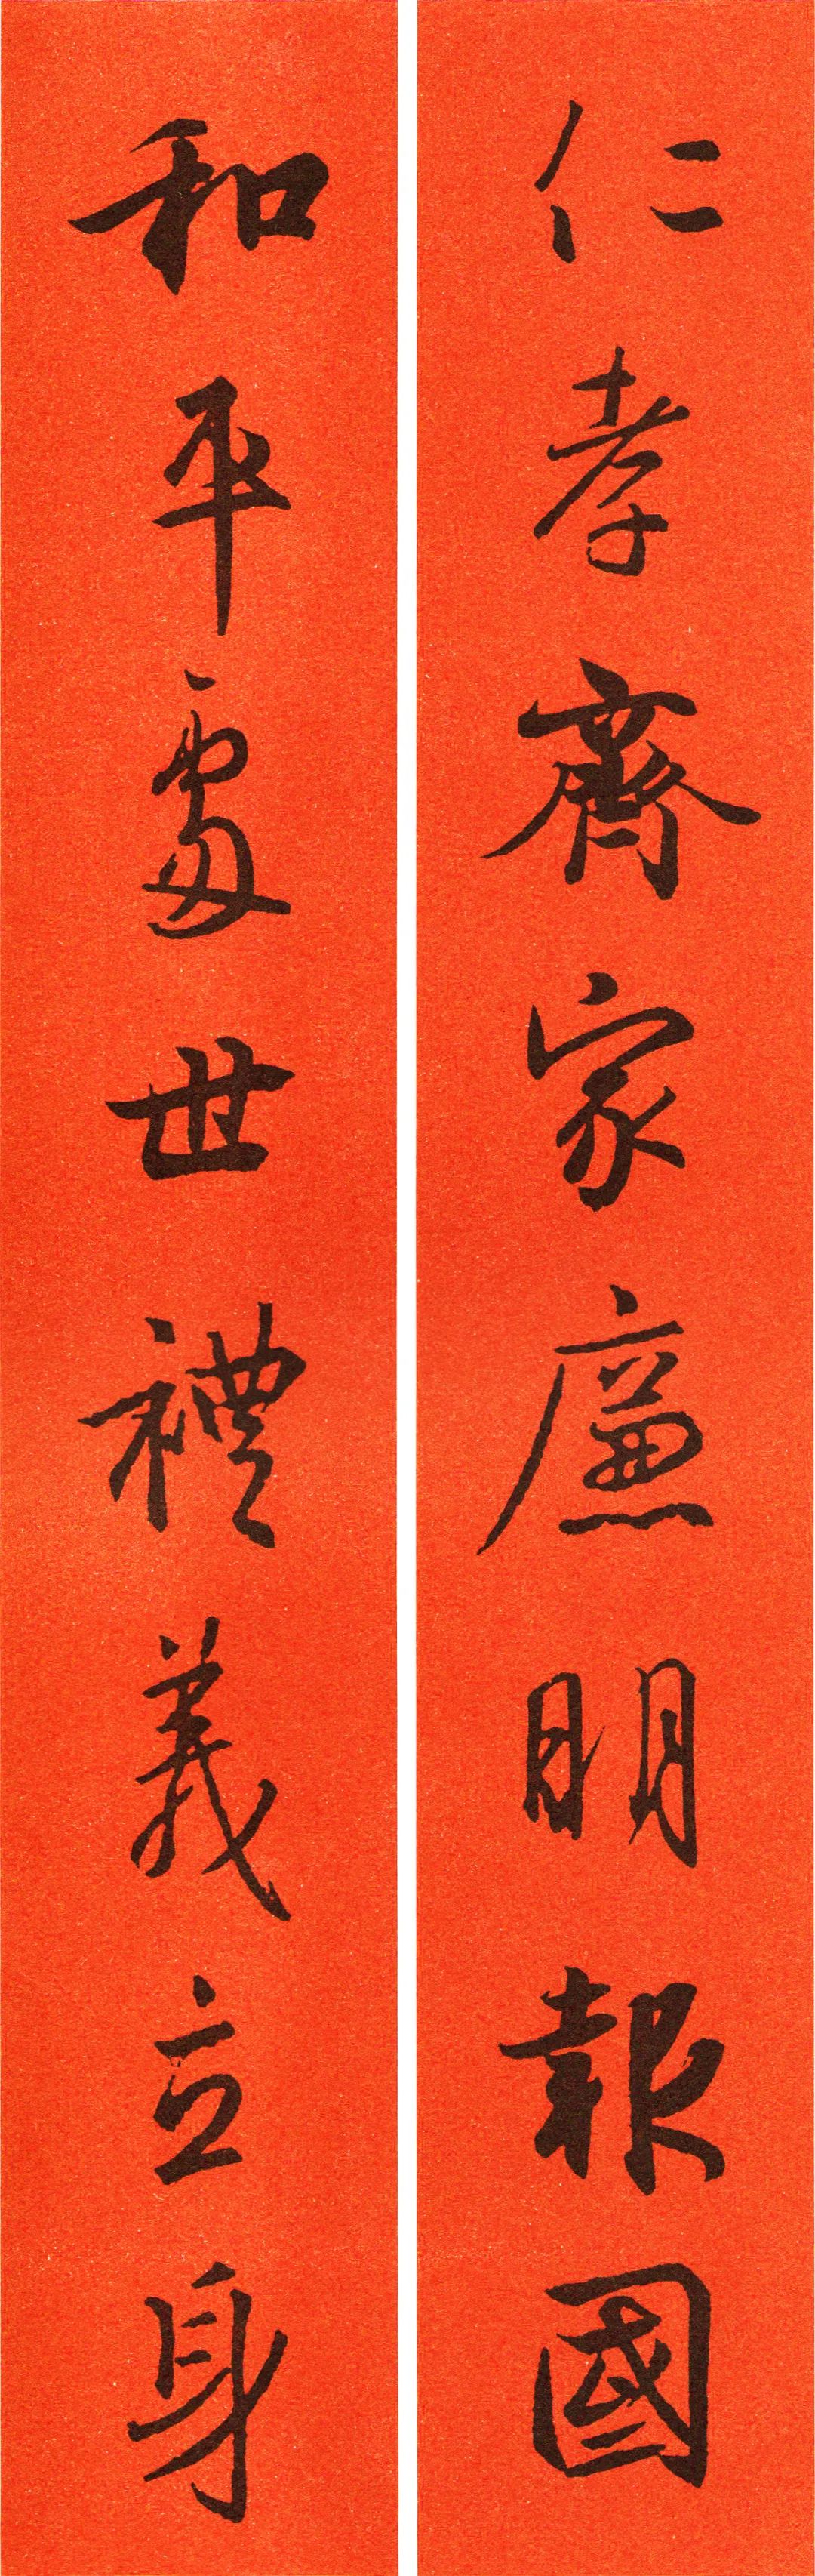 仁孝齊家廉明報國
和平處世禮義立身